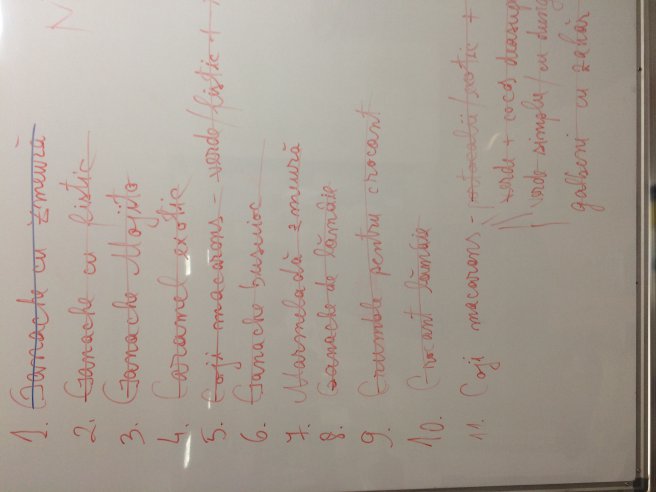 1. Ganache cu zmeură
2. Ganache cu fistic
3. Ganache Mojito
4. Caramel exotic
5. Coji macarons - verde/fistic +
6. Ganache busuioc
7. Marmeladă zmeură
8. Ganache de lămâie
9. Crumble pentru crocant
10. Crocant lămâie
11. Coji macarons - portocalii/exotic +
verde + cocos deasupra
verde simplu/cu
galbeni cu zahăr